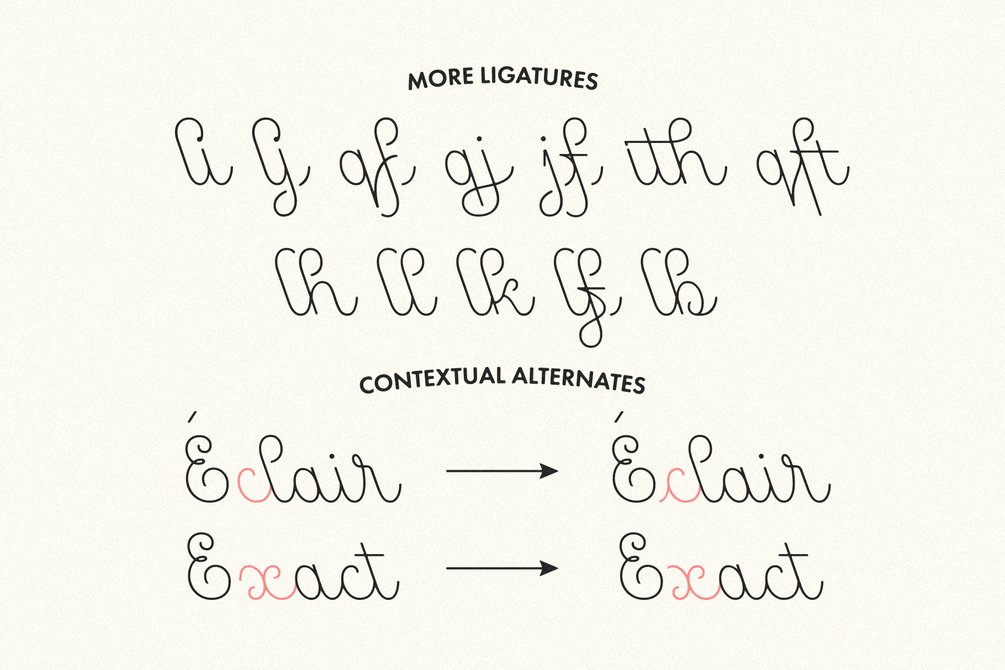 MORE LIGATURES
li lj qf gj jf tth qft
lh ll lk lf lb
CONTEXTUAL ALTERNATES
Éclair → Éclair
Exact → Exact